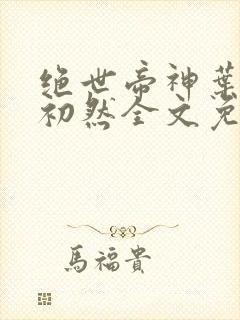 绝世帝神葉
初然全文免
馬福貴